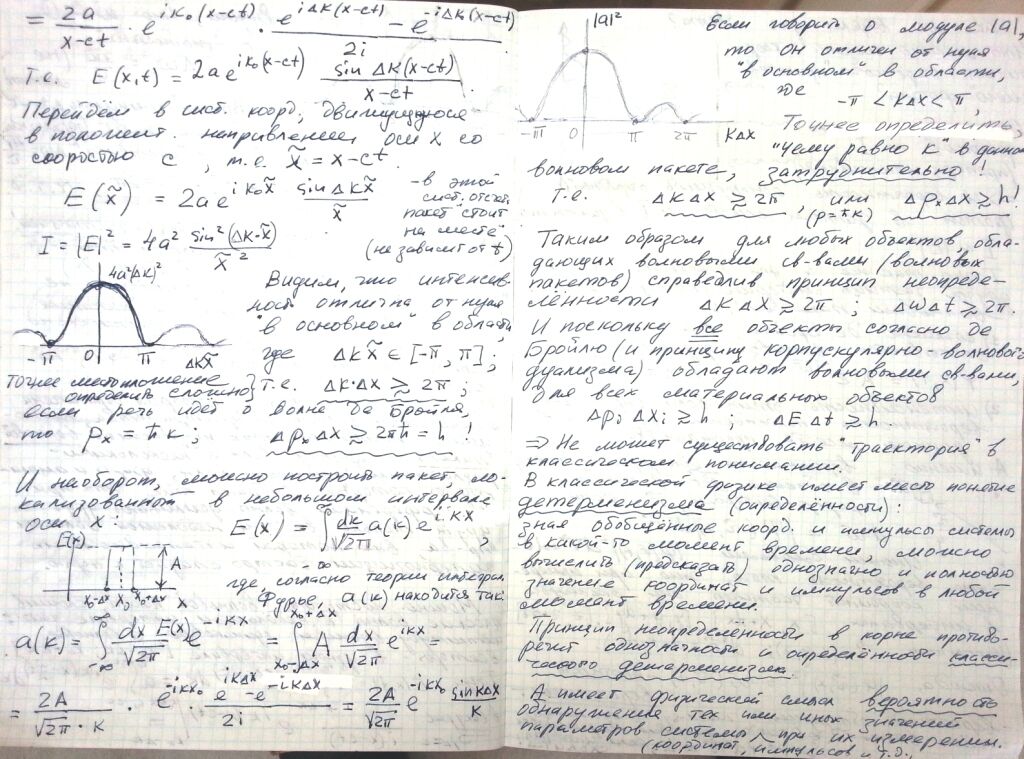 = 2a/(x-ct) · e^{ik₀(x-ct)} · (e^{iΔk(x-ct)} - e^{-iΔk(x-ct)})/2i
Т.е. E(x,t) = 2a e^{ik₀(x-ct)} sin Δk(x-ct)/(x-ct)
Перейдём в сист. коорд, движущуюся
в положит. направлении оси X со
скоростью c, т.е. x̃ = x-ct.
E(x̃) = 2a e^{ik₀x̃} sin Δk x̃/x̃
- в этой
сист. отсчёта
пакет "стоит
на месте"
(не зависит от t)
I = |E|² = 4a² sin²(Δk·x̃)/x̃²
4a²(Δk)²
-π 0 π Δkx̃
Видим, что интенсив-
ность отлична от нуля
"в основном" в области,
где Δkx̃ ∈ [-π, π];
точнее местоположение
определить сложно}
т.е. Δk·Δx ≳ 2π;
если речь идёт о волне де Бройля,
то pₓ = ħk; Δpₓ Δx ≳ 2πħ = h !
И наоборот, можно построить пакет, ло-
кализованный в небольшом интервале
оси X: E(x) = ∫_{-∞}^{∞} dk/√2π a(k) e^{ikx},
E(x)
A
x₀-Δx x₀ x₀+Δx x
где, согласно теории интеграл.
Фурье, a(k) находится так:
a(k) = ∫_{-∞}^{∞} dx E(x)/√2π e^{-ikx} = ∫_{x₀-Δx}^{x₀+Δx} A dx/√2π e^{ikx} =
= 2A/(√2π · k) · e^{-ikx₀} (e^{ikΔx} - e^{-ikΔx})/2i = 2A/√2π e^{-ikx₀} sin kΔx/k
|a|²
-π 0 π 2π kΔx
Если говорить о модуле |a|,
то он отличен от нуля
"в основном" в области,
где
-π < kΔx < π,
Точнее определить,
"чему равно k" в данном
волновом пакете, затруднительно!
Т.е. Δk Δx ≳ 2π, или Δpₓ Δx ≳ h!
(p=ħk)
Таким образом для любых объектов, обла-
дающих волновыми св-вами (волновых
пакетов) справедлив принцип неопреде-
лённости Δk Δx ≳ 2π; Δω Δt ≳ 2π.
И поскольку все объекты согласно де
Бройлю (и принципу корпускулярно-волнового
дуализма) обладают волновыми св-вами,
для всех материальных объектов
Δpᵢ Δxᵢ ≳ h; ΔE Δt ≳ h.
⇒ Не может существовать "траектория" в
классическом понимании.
В классической физике имеет место понятие
детерменизма (определённости):
зная обобщённые коорд. и импульсы системы
в какой-то момент времени, можно
вычислить (предсказать) однозначно и полностью
значение координат и импульсов в любой
момент времени.
Принцип неопределённости в корне противо-
речит однозначности и определённости класси-
ческого детерменизма.
А имеет физический смысл вероятность
обнаружения тех или иных значений
параметров системы при их измерении.
(координат, импульсов и т.д.)